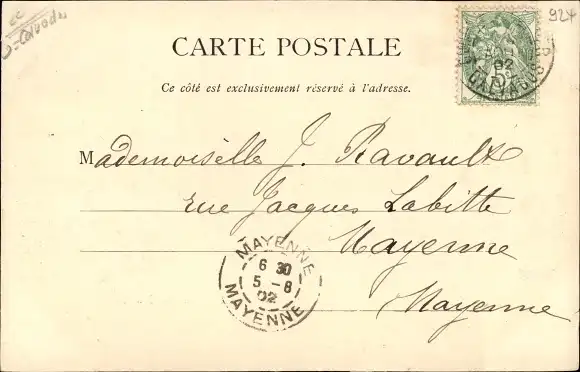 924
CARTE POSTALE
02
CALVADOS
5
Ce côté est exclusivement réservé à l'adresse.
Mademoiselle J. Ravault
rue Jacques Labitte
Mayenne
Mayenne
MAYENNE
6 30
5 - 8
02
MAYENNE